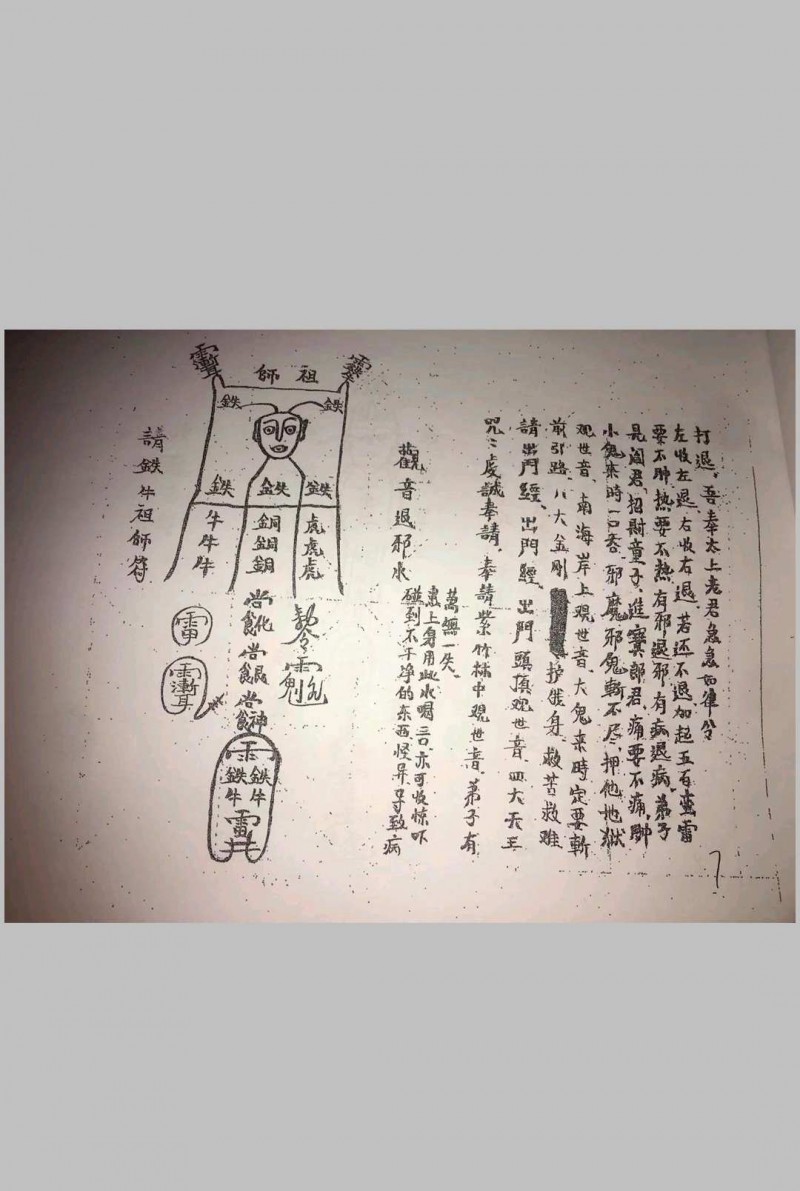 請鉄牛祖師符
祖師
鉄 鉄
鉄 鉄 鉄
牛牛牛
銅銅銅
虎虎虎
雷
鉄牛 鉄牛
雷
觀音退邪水
碰到不干净的东西怪异导致病
患上身用此水喝三口、亦可收惊吓
萬無一失
咒：虔誠奉請、奉請紫竹林中观世音、弟子有
請出門經、出門經、出門頭頂观世音、四大天王
前引路、八大金剛护俄身、救苦救难
观世音、南海岸上观世音、大鬼来時定要斬
小鬼来時一口吞、邪魔邪鬼斬不尽、押他地獄
見阎君、招財童子、進寶郎君、痛要不痛、肿
要不肿热要不热有邪退邪、有病退病、弟子
左收左退、右收右退、若还不退加起五百蛮雷
打退、吾奉太上老君急急如律令
7